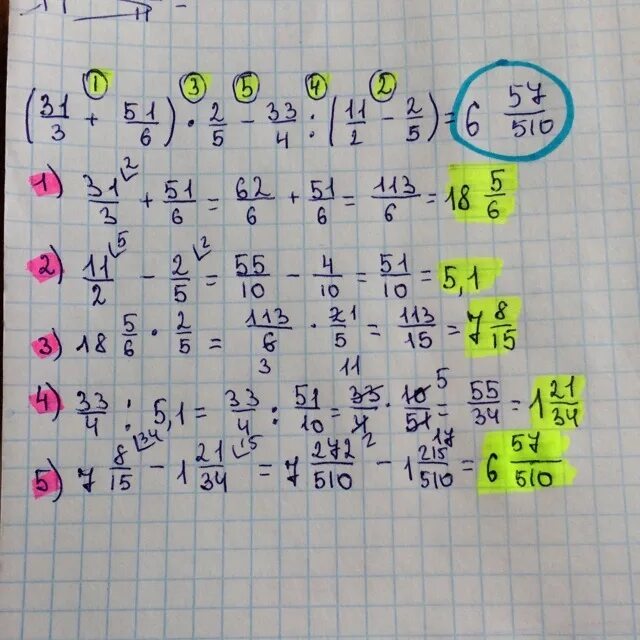 ① ③ ⑤ ④ ②
(31/3 + 51/6) · 2/5 - 33/4 : (11/2 - 2/5) = 6 57/510
1) 31/3 ² + 51/6 = 62/6 + 51/6 = 113/6 = 18 5/6
2) 11/2 ⁵ - 2/5 ² = 55/10 - 4/10 = 51/10 = 5,1
3) 18 5/6 · 2/5 = 113/6 3 · 2 1/5 = 113/15 = 7 8/15
4) 33/4 : 5,1 = 33/4 : 51/10 = 33 11/4 2 · 10 5/51 17 = 55/34 = 1 21/34
5) 7 8/15 ³⁴ - 1 21/34 ¹⁵ = 7 272/510 - 1 215/510 = 6 57/510